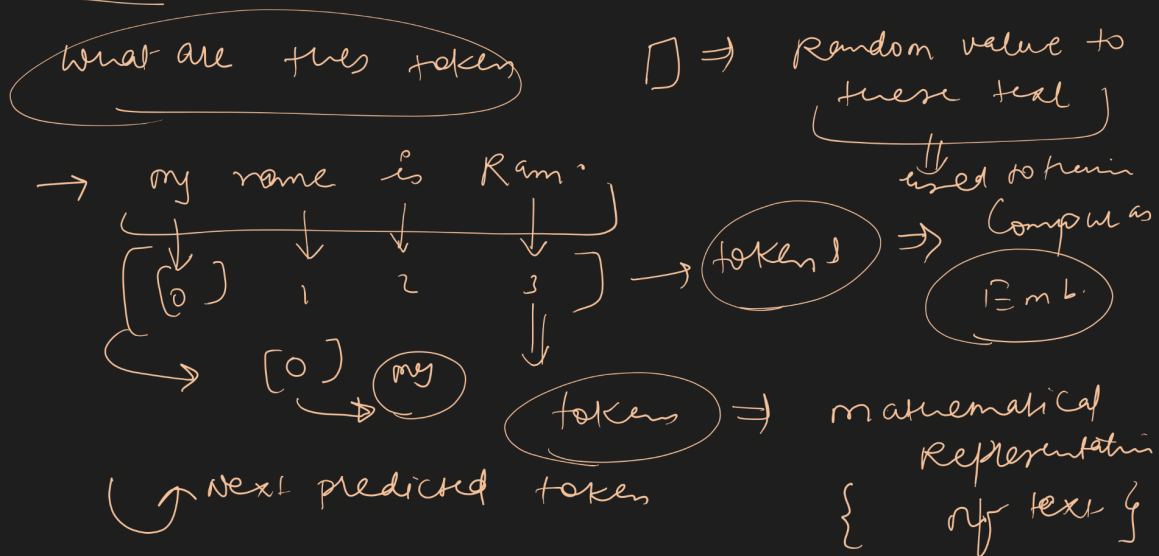 What are thes token
⇒ Random value to
these text
used to train
→ my name is Ram.
Compu as
Emb.
[[0] 1 2 3] → tokens ⇒
[0] → my
tokens ⇒ mathematical
Representation
{ of text }
Next predicted token